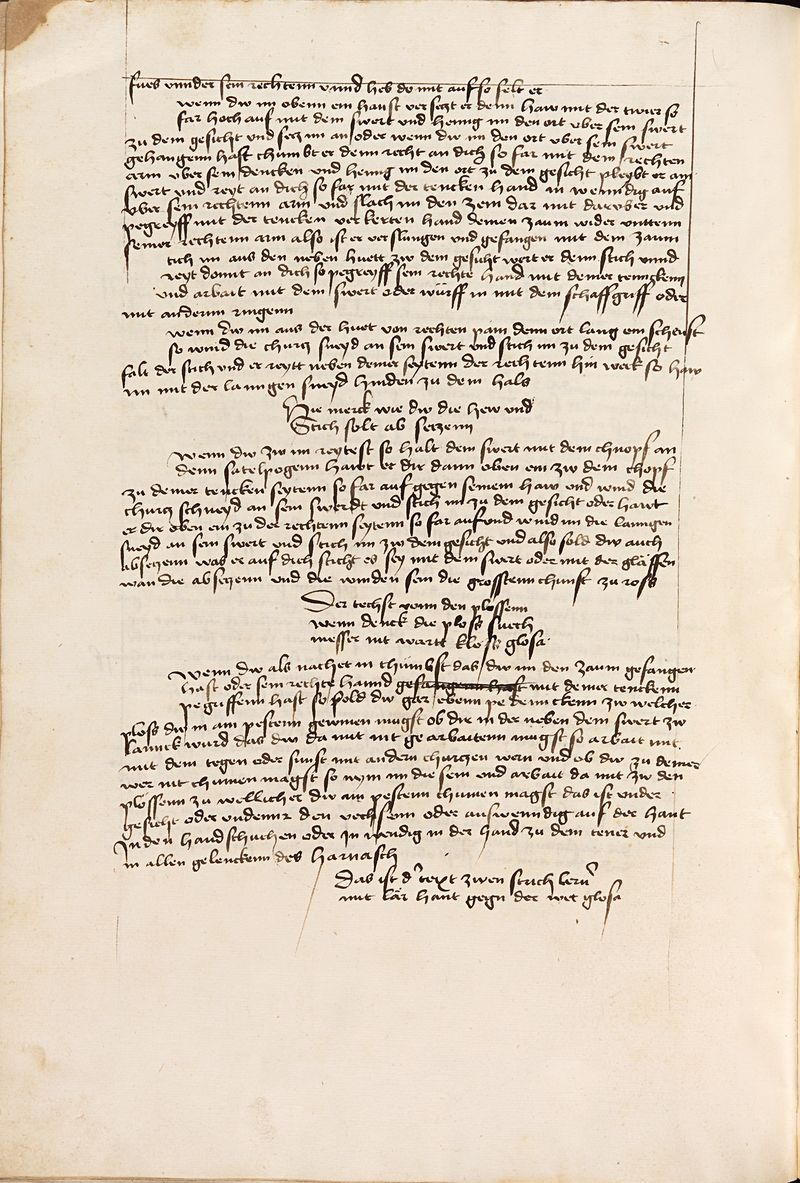 fues vnnder sein rechtenn vnnd heb do mit auf so felt er
wenn dw im obenn ein haust ver seczt er denn haw mit der twir so
far hoch auf mit dem swert vnd heng im den ort vber sein swert
zu dem gesicht vnd secz im an oder wenn dw im den ort vber sein swert
gehangenn hast chumbt er denn recht an dich so far mit dem rechten
arm vber sein dencken vnd heng im den ort zu dem gesicht pleybt er am
swert vnd reyt an dich so far mit der tencken hand in wenndig auf
vber sein rechtenn arm vnd slach im den zem dar mit daruber vnd
pegreyff mit der tencken ver kerten hand deinen zaum wider vnttenn
seinen rechtenn arm also ist er verslungen vnd gefangen mit dem zaum
tich im aus den neben huett zw dem gesicht wert er denn stich vnnd
reyt domit an dich so pegreyff sein rechte hand mit deiner tennckenn
vnd arbait mit dem swert oder würff in mit dem schaffgriff oder
mit anderm ringenn
wenn dw im aus der huet von rechten pain denn ort lang ein scheust
so wind die churcz sneyd an sein swert vnd stich im zu dem gesicht
falt der stich vnd er reytt neben deiner seytenn der rechtenn hin wek so haw
im mit der lanngen sneyd hinden zu dem hals
Hie merck wie dw die hew vnd
Stich solt ab seczenn
wenn dw zw im reytest so halt dein swert mit dem chnopf an
denn satelpogenn hawt er dir dann oben ein zw dem chopf
zu deiner tencken seytenn so far auf gegen seinem haw vnd wind die
churcz schneyd an sein swerdt vnd stich im zu dem gesicht oder hawt
er dir oben ein zu der rechtenn seytenn so far auf vnd wind im die lanngen
sneyd an sein swert vnd stich im zw dem gesicht vnd also sold dw auch
abseczenn was er auf dich sticht es sey mit dem swert oder mit der gläffen
wan die abseczenn vnd die winden sein die grosstenn chunst zu ross
Der techst vonn den plossenn
wenn denck die ploss suech
messer nit wartt kloss glosa
Wenn dw als nachet in chumbst das dw im den zaum gefangen
hast oder sein rechte hannd mit deiner tenckenn
pegriffenn hast so sold dw gar ebenn pe denncken zw welcher
ploss dw in am pestenn gewinen mugst ob dir in der neben dein swert zw
lannck wurd das dw da mit nit ge arbaitenn mugst so arbait mit
mit dem tegen oder sunst mit andern churczen wern vnd ob dw zu deiner
wer nit chumen magst so nym im die sein vnd arbait da mit zw den
plossenn zu wellicher dw am pestenn chumen magst das ist vnder
gesicht oder vndenn den vechsenn oder auswenndig auf der hant
In den handschuchen oder In wendig in der hand zu dem tener vnd
in allen gelenckenn des harnasch
Das ist d' text zwen strich lern
mit lär hant gegn der wer glosa